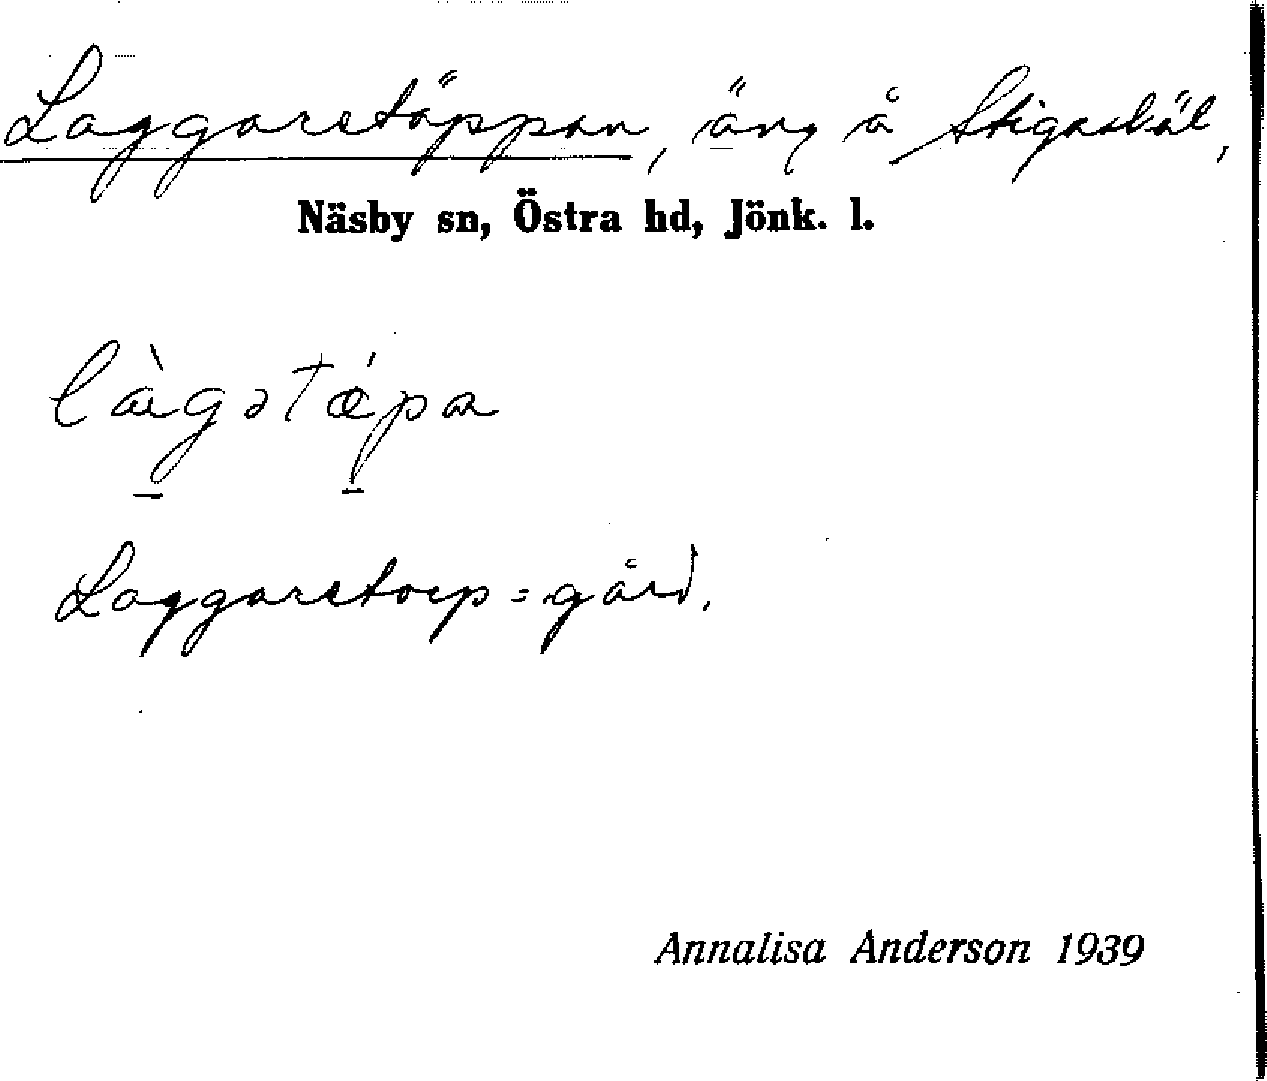 Laggaretäppan, äng å Stigasbäl,
Näsby sn, Östra hd, Jönk. l.
làgətǽpa
Laggaretorp = gård.
Annalisa Anderson 1939